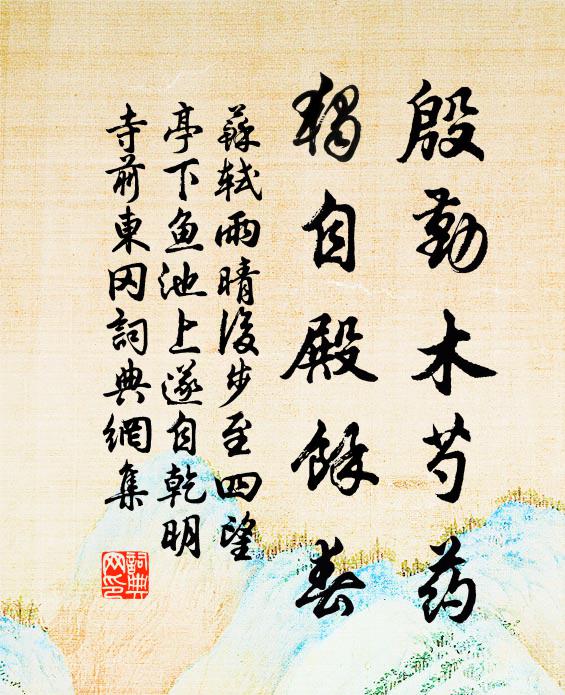 殷勤木芍药
独自殿馀春
蘇軾雨晴後步至四望
亭下鱼池上遂自乾明
寺前東冈詞典網集
詞典
网印